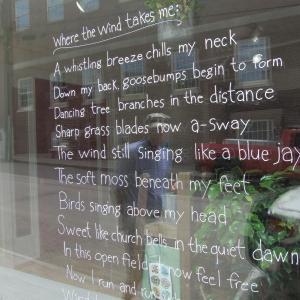 Where the wind takes me:
A whistling breeze chills my neck
Down my back, goosebumps begin to form
Dancing tree branches in the distance
Sharp grass blades now a-sway
The wind still singing like a blue jay
The soft moss beneath my feet
Birds singing above my head
Sweet like church bells in the quiet dawn
In this open field I now feel free
Now I run and run